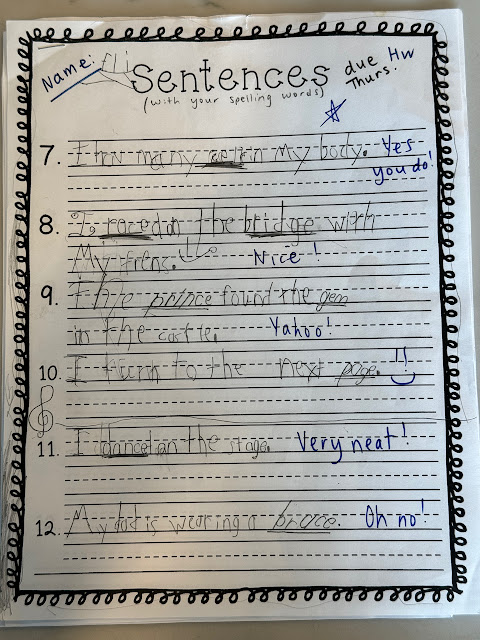 Name: Eli
Sentences
(with your spelling words)
due HW
Thurs.
7. I hav many in my body. Yes
you do!
8. I raced on the bridge with
My frens. Nice!
9. The prince found the gem
in the castle. Yahoo!
10. I turn to the next page.
11. I danced on the stage. Very neat!
12. My dad is wearing a brace. Oh no!